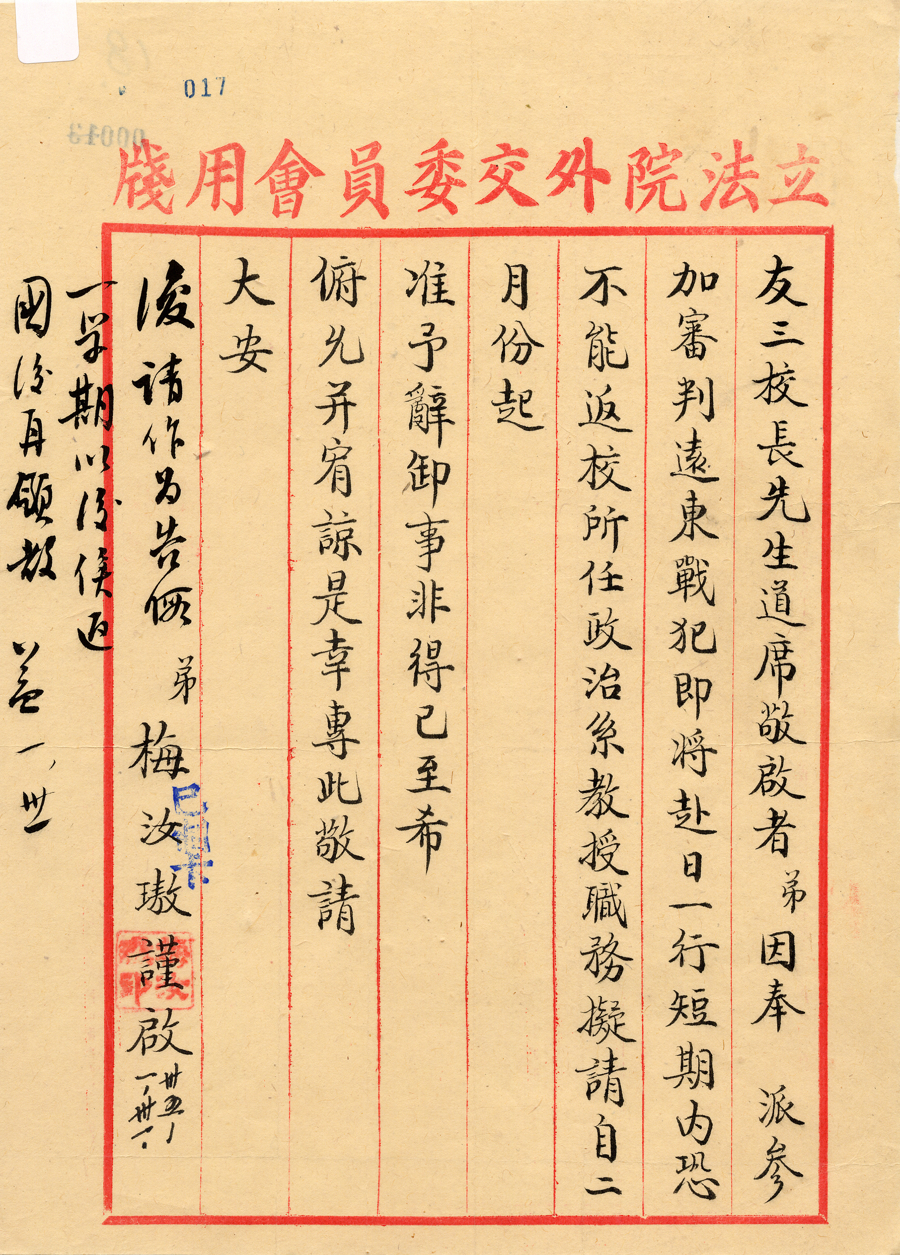 017
00013
立法院外交委員會用牋
友三校長先生道席敬啟者弟因奉 派參
加審判遠東戰犯即將赴日一行短期內恐
不能返校所任政治系教授職務擬請自二
月份起
准予辭卸事非得已至希
俯允并宥諒是幸專此敬請
大安
弟梅汝璈謹啟 卅五、一、卅一、
復請作為告假
一学期以後俟返
國後再領教 益 一、卅一